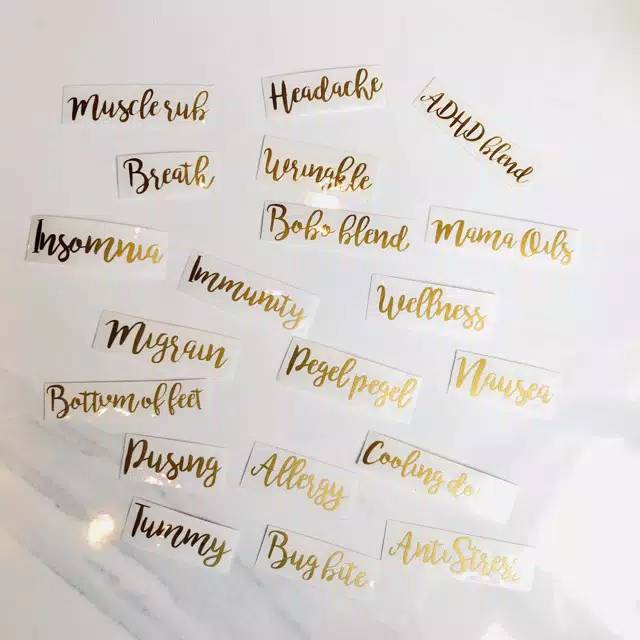 Muscle rub
Headache
ADHD blend
Breath
Wrinkle
Insomnia
Bobo blend
Mama Oils
Immunity
Wellness
Migrain
Pegel pegel
Nausea
Bottom of feet
Pusing
Allergy
Cooling do
Tummy
Bug bite
Anti Stres